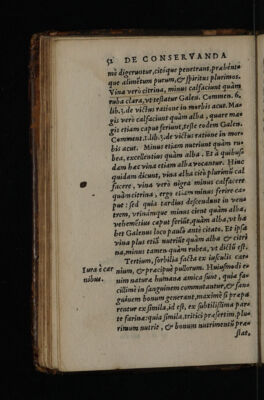 52 DE CONSERVANDA
mè digeruntur, citóque penetrant, præbéntq́
que alimētum purum, & spiritus plurimos.
Vina verò citrina, minus calfaciunt quàm
rubra clara, vt testatur Galen. Commen. 6.
lib. 3. de victus ratione in morbis acut. Ma-
gis verò calfaciunt quàm alba, quare ma-
gis etiam caput feriunt, teste eodem Galen.
Comment. 1. lib. 3. de victus ratione in mor-
bis acut. Minus etiam nutriunt quàm ru-
bea, excellentius quàm alba. Et à quibus-
dam hæc vina etiam alba vocantur. Hinc
quidam dicunt, vina alba citò plurimū cal
facere, vina verò nigra minus calfacere
quàm citrina, ergo etiam minus ferire ca-
put: sed quia tardius descendunt in ven-
trem, vrinámque minus cient quàm alba,
vehemētius caput feriūt, quàm alba, vt ha
bet Galenus loco paulò antè citato. Et ipsa
vina plus etiā nutriūt quàm alba & citri
na, minus tamen quàm rubea, vt dictū est.
Tertium, sorbilia facta ex iusculis car-
Iura è car nium, & præcipuè pullorum. Huiusmodi e-
nibus. nim natura humana amica sunt, quia fa-
cillimè in sanguinem commutantur, & san-
guinem bonum generant, maximè si præpa
rentur ex simila, id est, ex subtilissima par-
te farinæ: quia simila, tritici præsertim, plu-
rimum nutrit, & bonum nutrimentū præ-
stat,